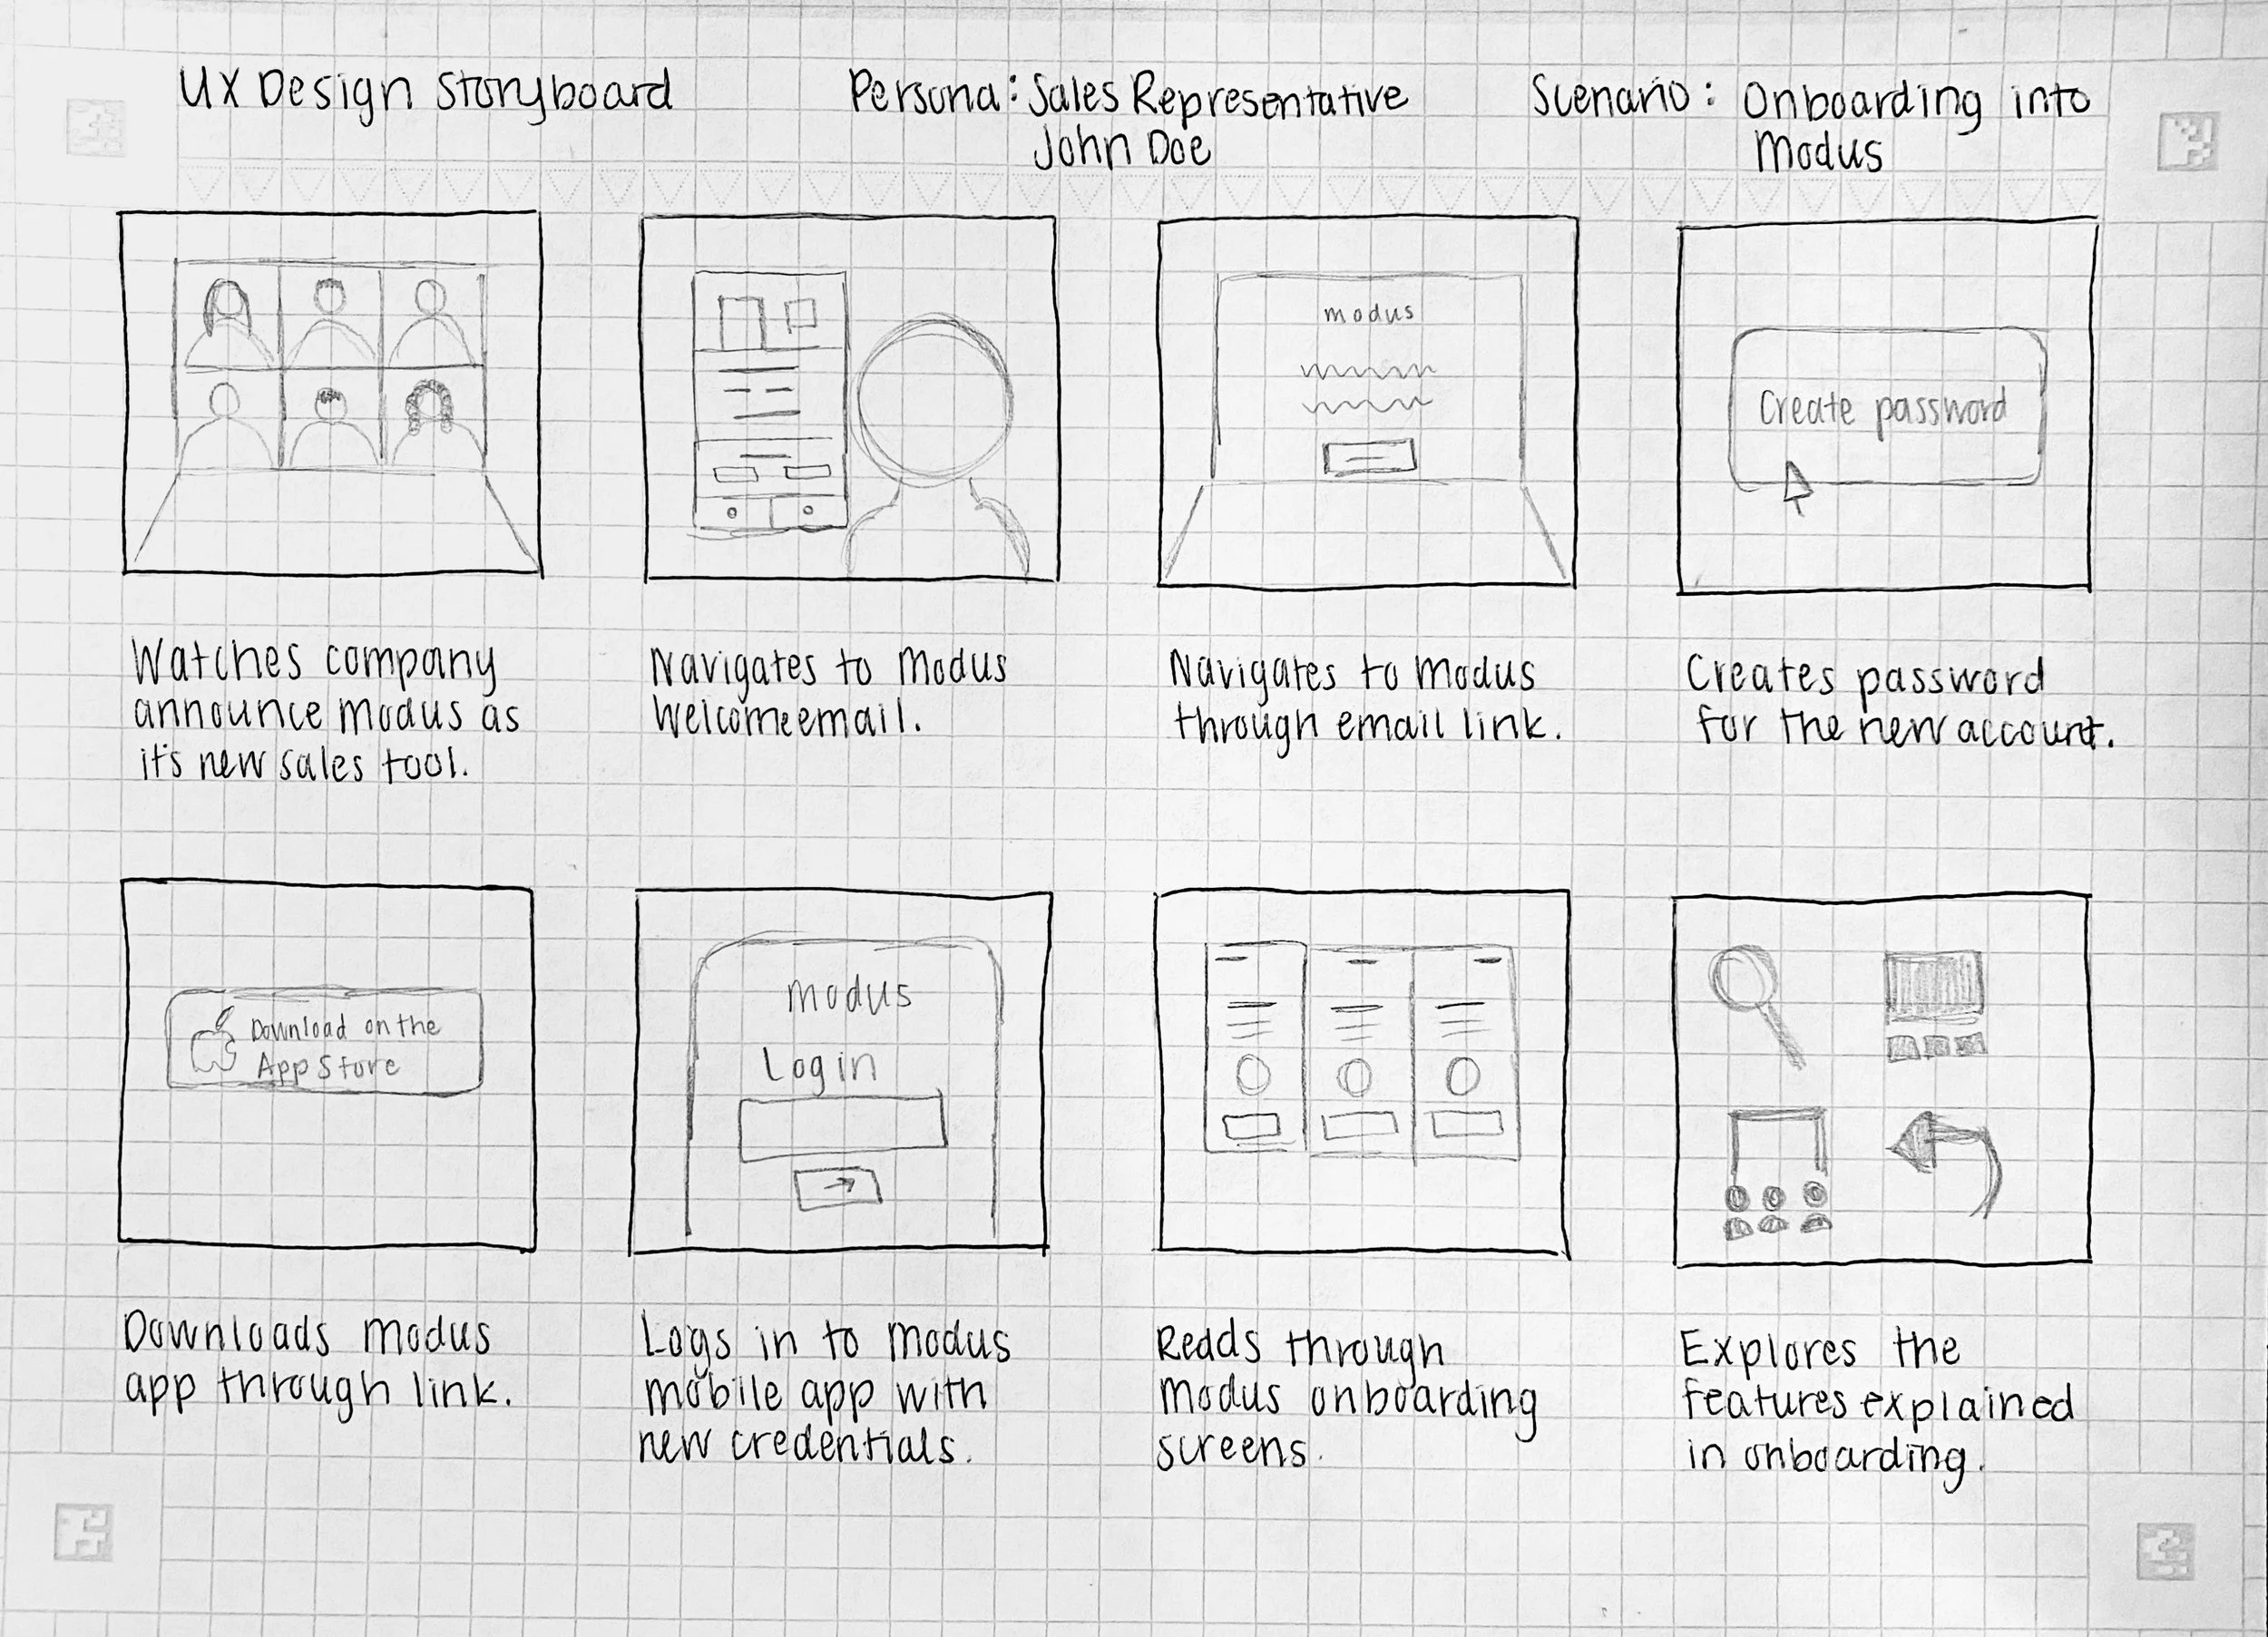 UX Design Storyboard
Persona: Sales Representative
John Doe
Scenario: Onboarding into
Modus
modus
Create password
Watches company
announce modus as
it's new sales tool.
Navigates to Modus
welcome email.
Navigates to modus
through email link.
Creates password
for the new account.
Download on the
App Store
modus
Login
Downloads modus
app through link.
Logs in to modus
mobile app with
new credentials.
Reads through
modus onboarding
screens.
Explores the
features explained
in onboarding.